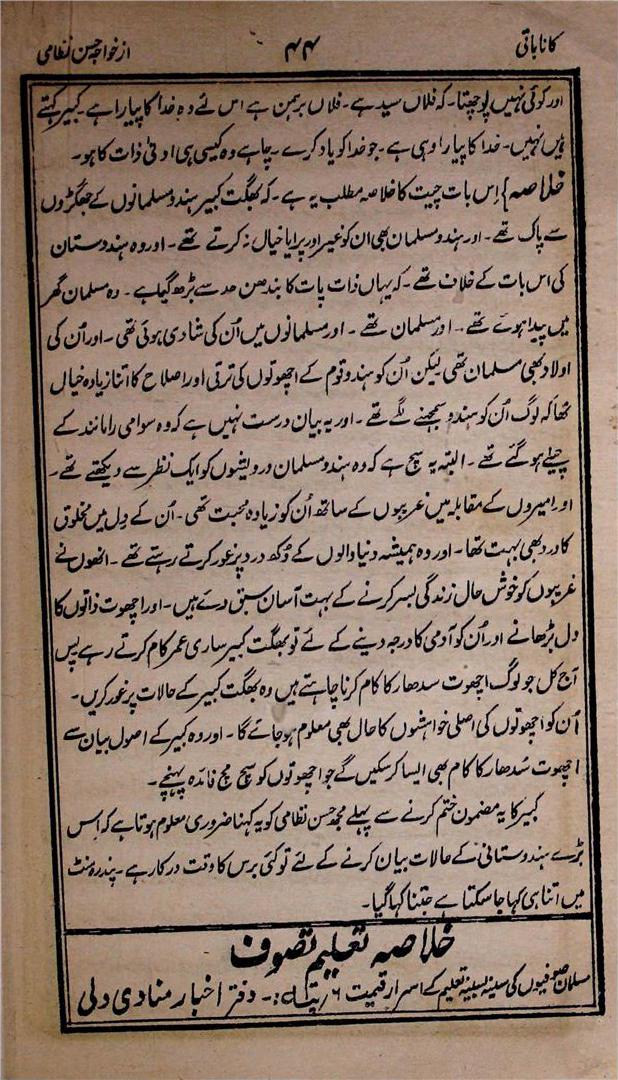 کانا باتی
۴۴
از خواجہ حسن نظامی
اور کوئی نہیں پوچھتا۔ کہ فلاں سید ہے۔ فلاں برہمن ہے اس لئے وہ خدا کا پیارا ہے۔ کبیر کہتے
ہیں نہیں۔ خدا کا پیارا وہی ہے۔ جو خدا کو یاد کرے۔ چاہے وہ کیسی ہی ادنیٰ ذات کا ہو۔
خلاصہ} اِس بات چیت کا خلاصہ مطلب یہ ہے۔ کہ بھگت کبیر ہندو مسلمانوں کے جھگڑوں
سے پاک تھے۔ اور ہندو مسلمان بھی ان کو غیر اور پرایا خیال نہ کرتے تھے۔ اور وہ ہندوستان
کی اس بات کے خلاف تھے۔ کہ یہاں ذات پات کا بندھن حد سے بڑھ گیا ہے۔ وہ مسلمان گھر
میں پیدا ہوے تھے۔ اور مسلمان تھے۔ اور مسلمانوں میں اُن کی شادی ہوئی تھی۔ اور اُن کی
اولاد بھی مسلمان تھی لیکن اُن کو ہندو قوم کے اچھوتوں کی ترقی اور اصلاح کا اتنا زیادہ خیال
تھا کہ لوگ اُن کو ہندو سمجھنے لگے تھے۔ اور یہ بیان درست نہیں ہے کہ وہ سوامی رامانند کے
چیلے ہو گئے تھے۔ البتہ یہ سچ ہے کہ وہ ہندو مسلمان درویشوں کو ایک نظر سے دیکھتے تھے۔
اور امیروں کے مقابلہ میں غریبوں کے ساتھ اُن کو زیادہ محبت تھی۔ اُن کے دِل میں مخلوق
کا درد بھی بہت تھا۔ اور وہ ہمیشہ دنیا والوں کے دُکھ درد پر غور کرتے رہتے تھے۔ انھوں نے
غریبوں کو خوش حال زندگی بسر کرنے کے بہت آسان سبق دے ہیں۔ اور اچھوت ذاتوں کا
دل بڑھانے اور اُن کو آدمی کا درجہ دینے کے لئے تو بھگت کبیر ساری عمر کام کرتے رہے پس
آج کل جو لوگ اچھوت سدھار کا کام کرنا چاہتے ہیں وہ بھگت کبیر کے حالات پر غور کریں۔
اُن کو اچھوتوں کی اصلی خواہشوں کا حال بھی معلوم ہو جائے گا۔ اور وہ کبیر کے اصول بیان سے
اچھوت سُدھار کا کام بھی ایسا کر سکیں گے جو اچھوتوں کو سچ مچ فائدہ پہنچے۔
کبیر کا یہ مضمون ختم کرنے سے پہلے مجھ حسن نظامی کو یہ کہنا ضروری معلوم ہوتا ہے کہ اِس
بڑے ہندوستانی کے حالات بیان کرنے کے لئے تو کئی برس کا وقت درکار ہے۔ پندرہ منٹ
میں اتنا ہی کہا جا سکتا ہے جتنا کہا گیا۔
خلاصہ تعلیم تصوف
مسلمان صوفیوں کی سینہ بسینہ تعلیم کے اسرار قیمت ۶؍ پتہ:۔ دفتر اخبار منادی دلی